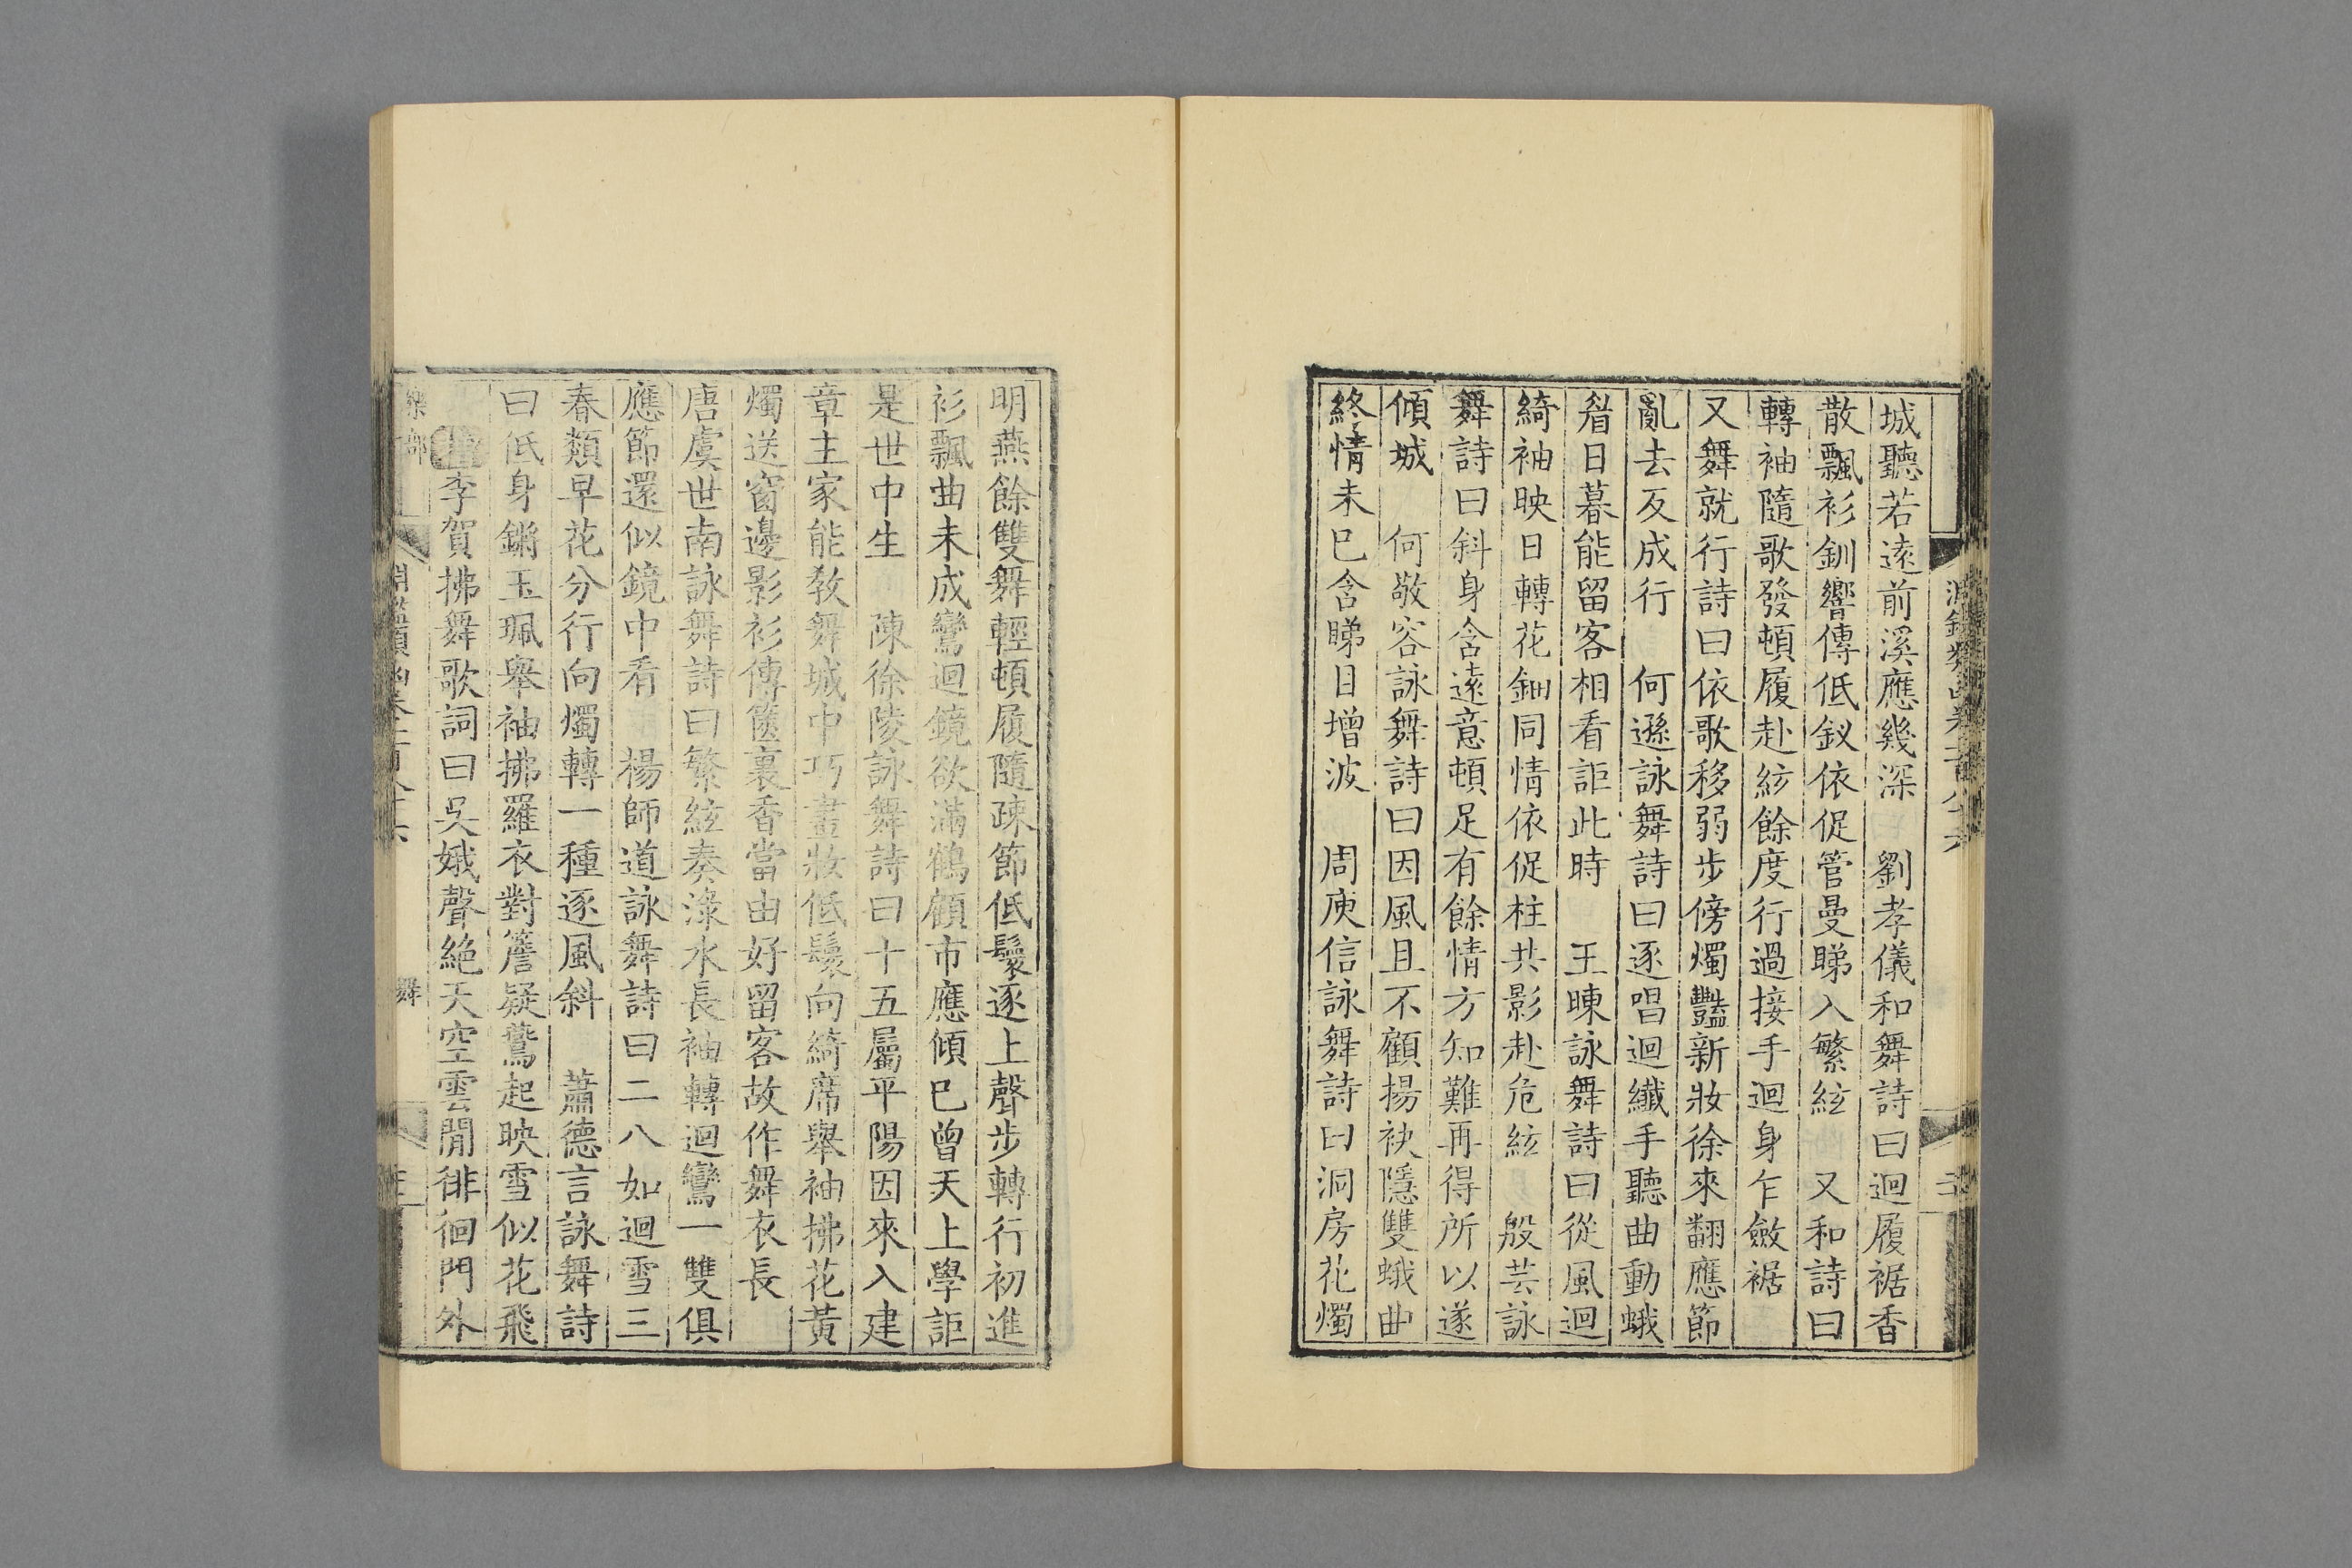 城聽若遠前溪應幾深　劉孝儀和舞詩曰迴履裾香
散飄衫釧響傳低釵依促管曼睇入繁絃　又和詩曰
轉袖隨歌發頓履赴絃餘度行過接手迴身乍斂裾
又舞就行詩曰依歌移弱步傍燭豔新妝徐來翻應節
亂去反成行　何遜詠舞詩曰逐唱迴纖手聽曲動蛾
眉日暮能留客相看詎此時　王暕詠舞詩曰從風迴
綺袖映日轉花鈿同情依促柱共影赴危絃　殷芸詠
舞詩曰斜身含遠意頓足有餘情方知難再得所以遂
傾城　何敬容詠舞詩曰因風且不顧揚袂隱雙蛾曲
終情未已含睇目增波　周庾信詠舞詩曰洞房花燭
明燕餘雙舞輕頓履隨疎節低鬟逐上聲步轉行初進
衫飄曲未成鸞迴鏡欲滿鶴顧市應傾已曾天上學詎
是世中生　陳徐陵詠舞詩曰十五屬平陽因來入建
章主家能教舞城中巧畫妝低鬟向綺席舉袖拂花黃
燭送窗邊影衫傳篋裏香當由好留客故作舞衣長
唐虞世南詠舞詩曰繁絃奏淥水長袖轉迴鸞一雙俱
應節還似鏡中看　楊師道詠舞詩曰二八如迴雪三
春類早花分行向燭轉一種逐風斜　蕭德言詠舞詩
曰低身鏘玉珮舉袖拂羅衣對簷疑鷰起映雪似花飛
李賀拂舞歌詞曰吳娥聲絶天空雲閒徘徊門外
樂部　淵鑑類函卷一百八十六　舞